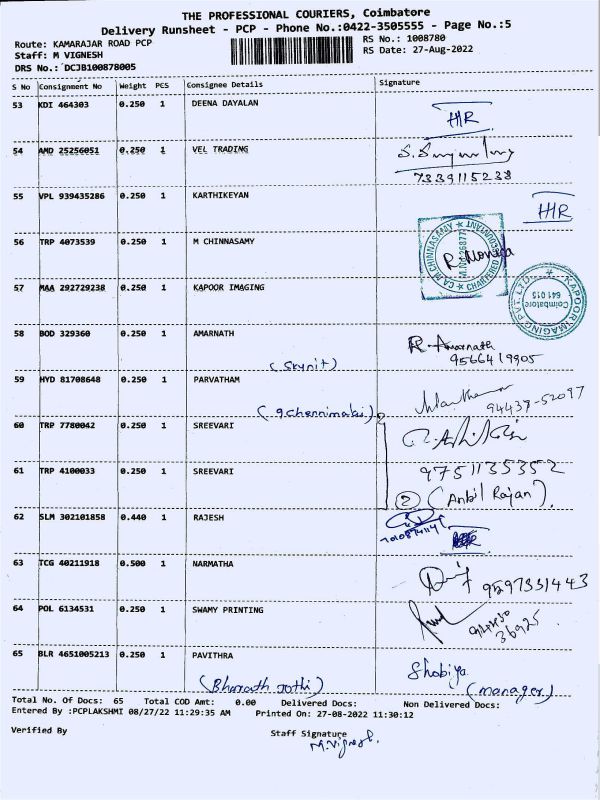 THE PROFESSIONAL COURIERS, Coimbatore
Delivery Runsheet - PCP - Phone No.:0422-3505555 - Page No.:5
Route: KAMARAJAR ROAD PCP RS No.: 1008780
Staff: M VIGNESH RS Date: 27-Aug-2022
DRS No.: DCJB100878005
S No Consignment No Weight PCS Consignee Details Signature
53 KDI 464303 0.250 1 DEENA DAYALAN
HR
54 AMD 25256051 0.250 1 VEL TRADING
7339115238
55 VPL 939435286 0.250 1 KARTHIKEYAN
HR
56 TRP 4073539 0.250 1 M CHINNASAMY
CA M CHINNASAMY ★ CHARTERED ACCOUNTANT ★
R. Monica
57 MAA 292729238 0.250 1 KAPOOR IMAGING
KAPOOR IMAGING PVT. LTD
Coimbatore
641 015
58 BOD 329360 0.250 1 AMARNATH R. Amarnath
(Skynit) 9566419905
59 HYD 81708648 0.250 1 PARVATHAM
(gchennimalai) 94439-52097
60 TRP 7780042 0.250 1 SREEVARI
61 TRP 4100033 0.250 1 SREEVARI 9751135352
2 (Anbil Rajan).
62 SLM 302101858 0.440 1 RAJESH
63 TCG 40211918 0.500 1 NARMATHA
9597331443
64 POL 6134531 0.250 1 SWAMY PRINTING
36925
65 BLR 4651005213 0.250 1 PAVITHRA Shobiya
(Bharath Jothi) (manager)
Total No. Of Docs: 65 Total COD Amt: 0.00 Delivered Docs: Non Delivered Docs:
Entered By :PCPLAKSHMI 08/27/22 11:29:35 AM Printed On: 27-08-2022 11:30:12
Verified By Staff Signature
M.Vignesh.